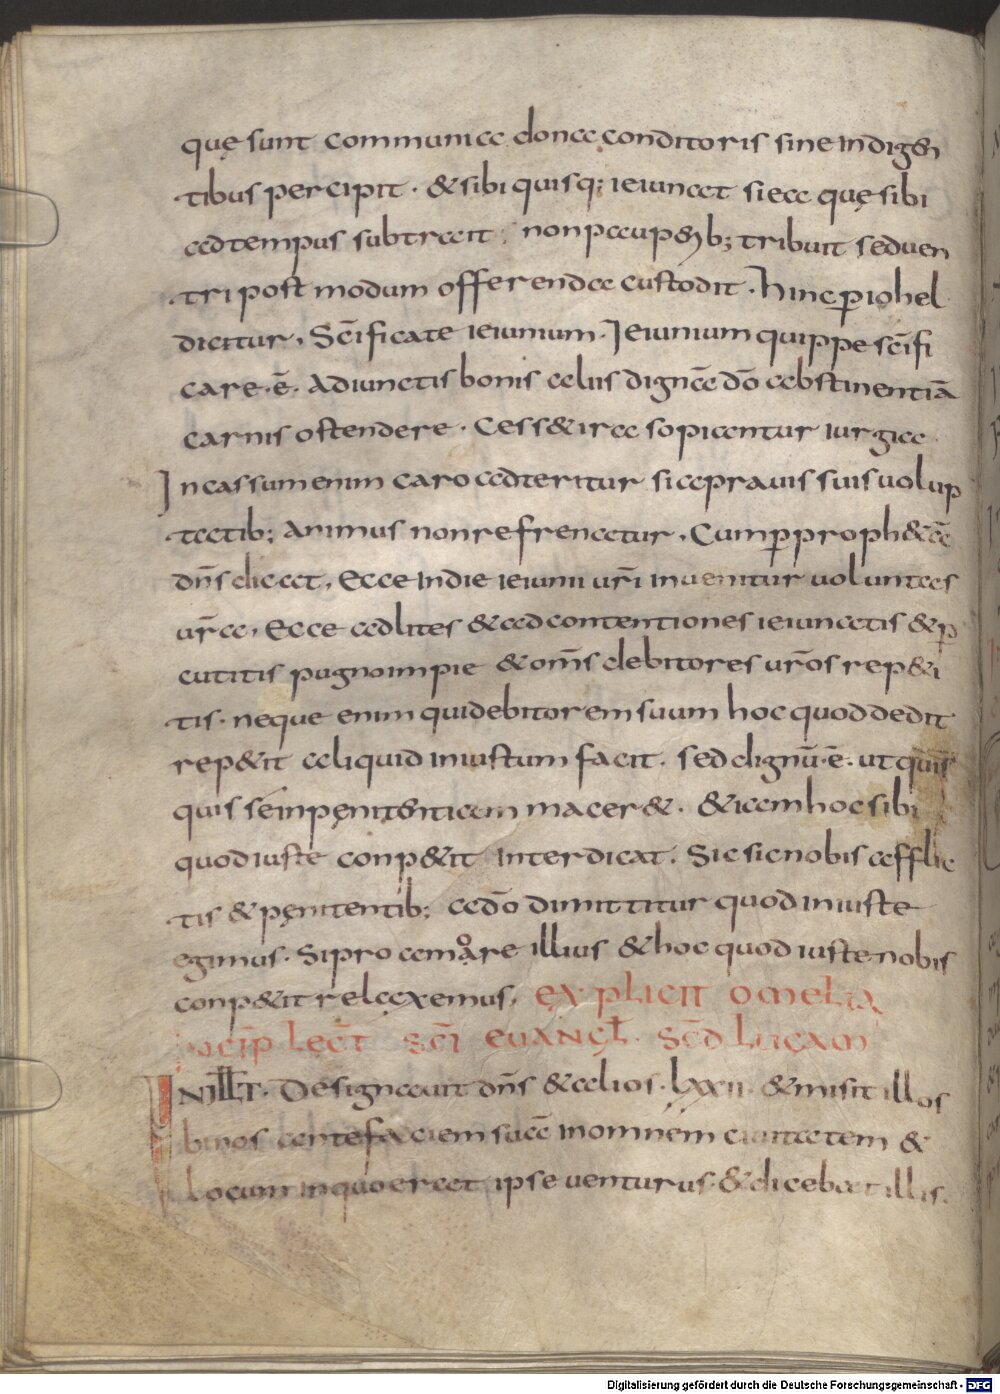 quę sunt communia dona conditoris sine indigen
tibus percipit · & sibi quisq; ieiunat si ea quę sibi
ad tempus subtrait · non pauperib; tribuit sed uen
tri post modum offerenda custodit · hinc p̄ iohel
dicitur · Sc̄ificate ieiunium · Ieiunium quippe sc̄ifi
care · ē · Adiunctis bonis aliis dignā dō abstinentiā
carnis ostendere · Cess& ira sopiantur iurgia
In cassum enim caro adteritur si a prauis suis uolup
tatib; animus non refrenatur · Cum p̄ proph&ā
dn̄s dicat · Ecce in die ieiunii ur̄i inuenitur uoluntas
ur̄a · Ecce ad lites & ad contentiones ieiunatis & p̄
cutitis pugno impie & om̄s debitores ur̄os rep&i
tis · neque enim qui debitorem suum hoc quod dedit
rep&it aliquid iniustum facit · sed dignū · ē · ut quis
quis se in penitentiam macer& · & iam hoc sibi
quod iuste conp&it interdicat · Sic sic nobis afflic
tis & penitentib; a dō dimittitur quod iniuste
egimus · Si pro amore illius & hoc quod iuste nobis
conp&it relaxemus · explicit omelia
incip̄ lect̄ sc̄i euangl̄ · sc̄d lucam
IN ILL T · Designauit dn̄s & alios · lxxii · & misit illos
binos ante faciem suā in omnem ciuitatem &
locum in quo erat ipse uenturus & dicebat illis ·
Digitalisierung gefördert durch die Deutsche Forschungsgemeinschaft - DFG